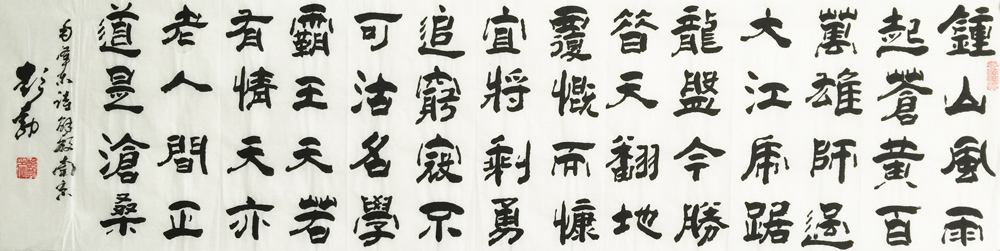 鍾山風雨
起蒼黃百
萬雄師過
大江虎踞
龍盤今勝
昔天翻地
覆慨而慷
宜將剩勇
追窮寇不
可沽名學
霸王天若
有情天亦
老人間正
道是滄桑
澤東詩解放南京